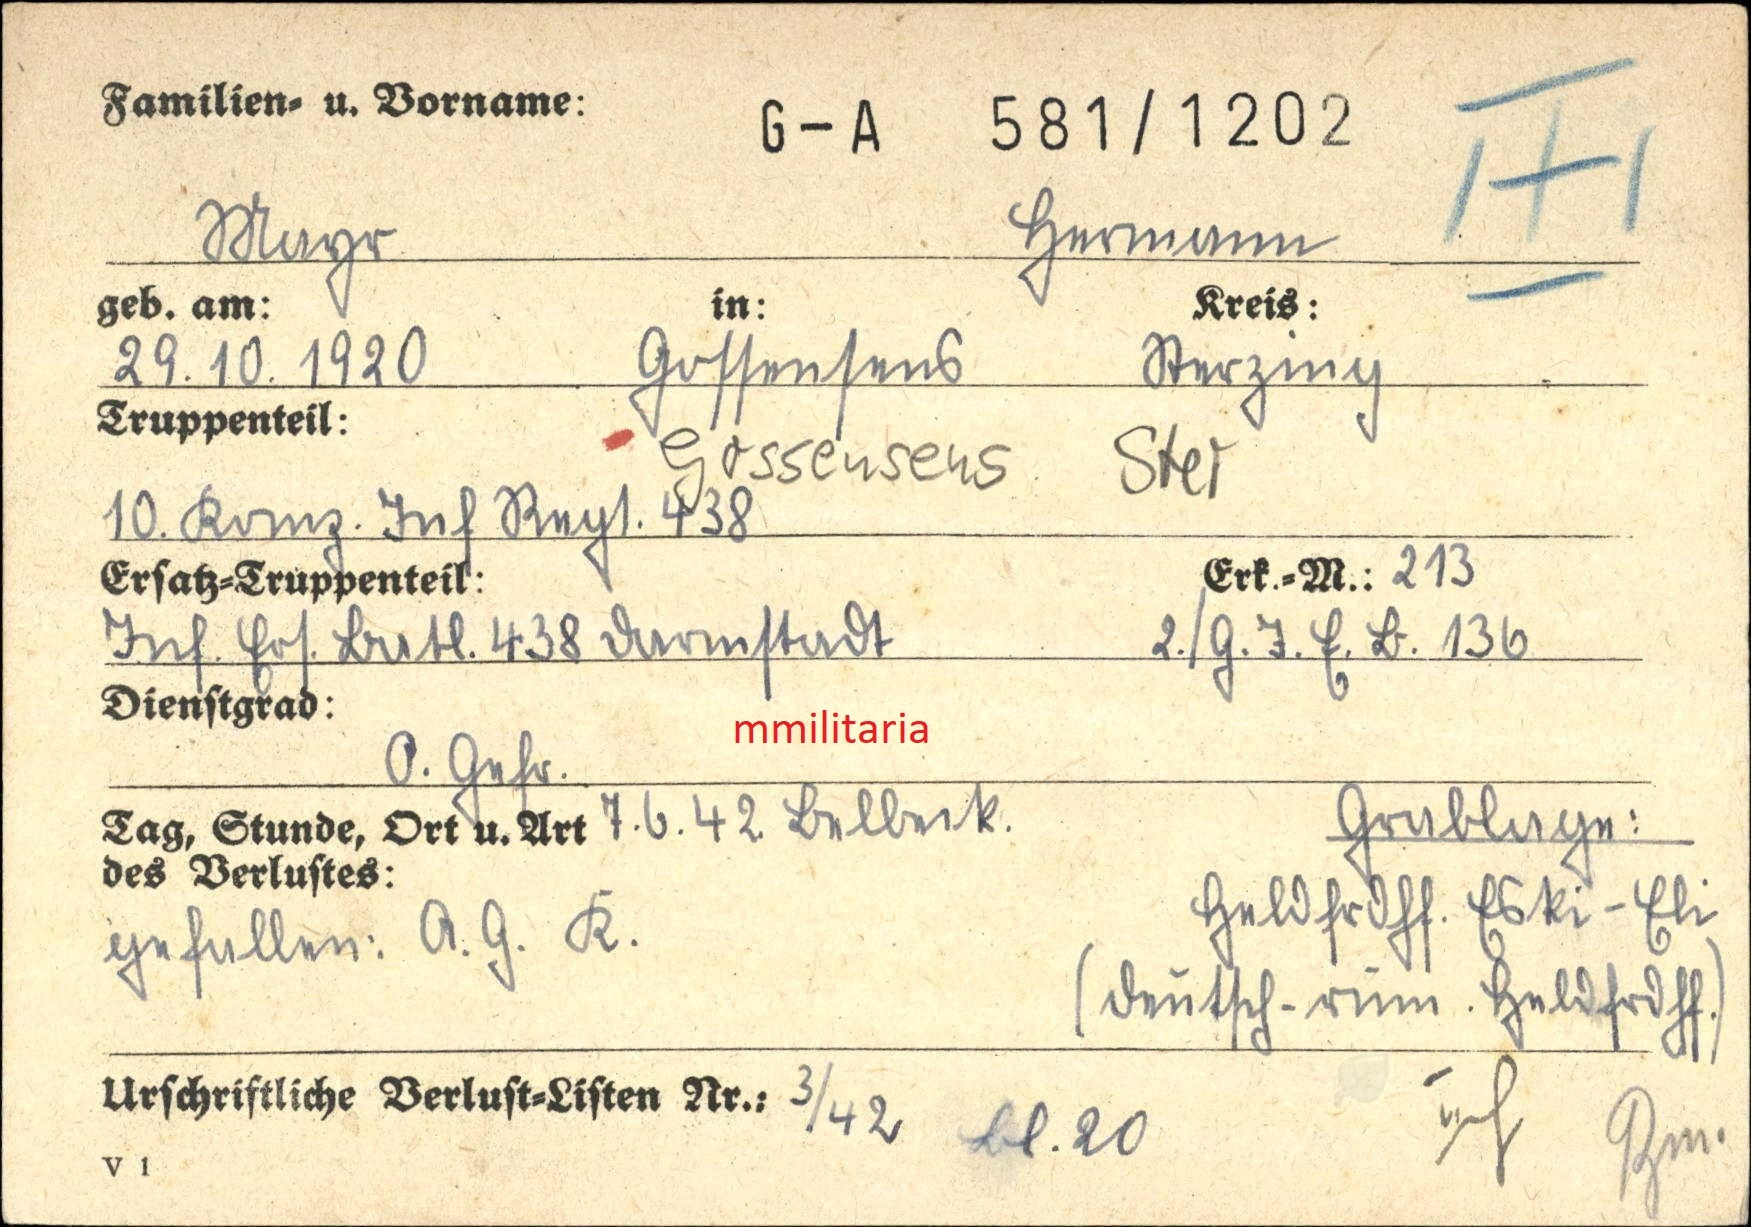 Familien- u. Vorname: G-A 581/1202
Mayr Hermann
geb. am: in: Kreis:
29.10.1920 Gossensens Sterzing
Truppenteil:
Gossensens Ster
10. Komp. Inf Regt. 438
Ersatz-Truppenteil: Erk.-M.: 213
Inf. Ers. Batl. 438 Darmstadt 2./G.J.E.B. 136
Dienstgrad:
mmilitaria
O. Gefr.
Tag, Stunde, Ort u. Art 7.6.42 Belbeck. Grablage:
des Verlustes:
Heldfrdhf. Eski-Eli
gefallen: A.G. K.
(deutsch-rum. Heldfrdhf.)
Urschriftliche Verlust-Listen Nr.: 3/42 Bl. 20
V 1